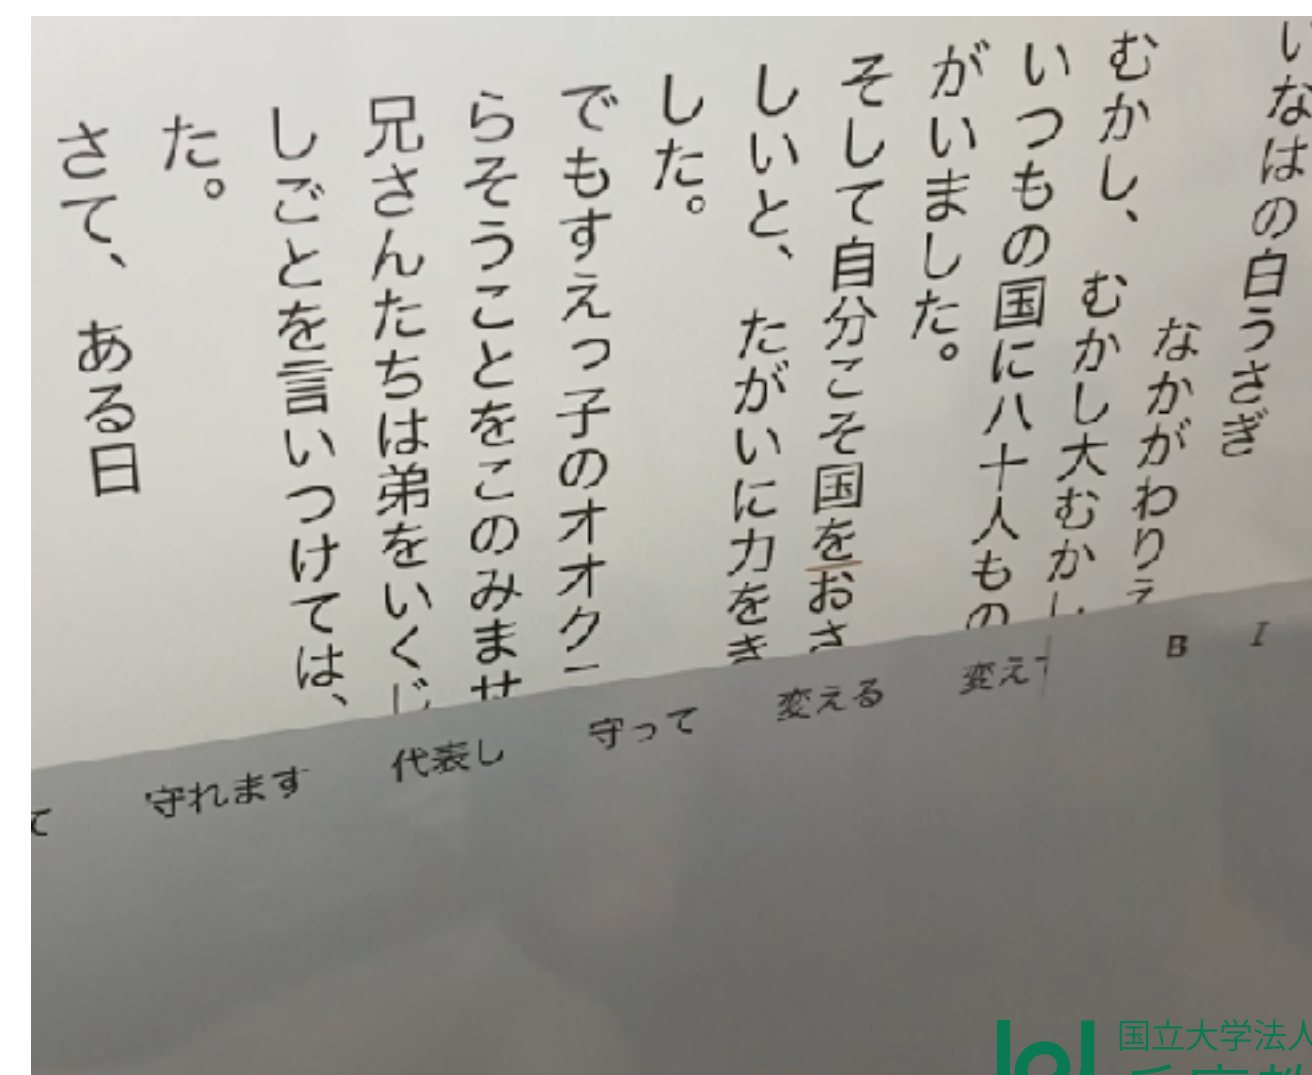 いなはの白うさぎ
なかがわりえ
むかし、むかし大むかし
いつもの国に八十人もの
がいました。
そして自分こそ国をおさ
しいと、たがいに力をき
した。
でもすえっ子のオオク
らそうことをこのみませ
兄さんたちは弟をいくじ
しごとを言いつけては、
た。
さて、ある日
て 守れます 代表し 守って 変える 変えて B I
国立大学法人